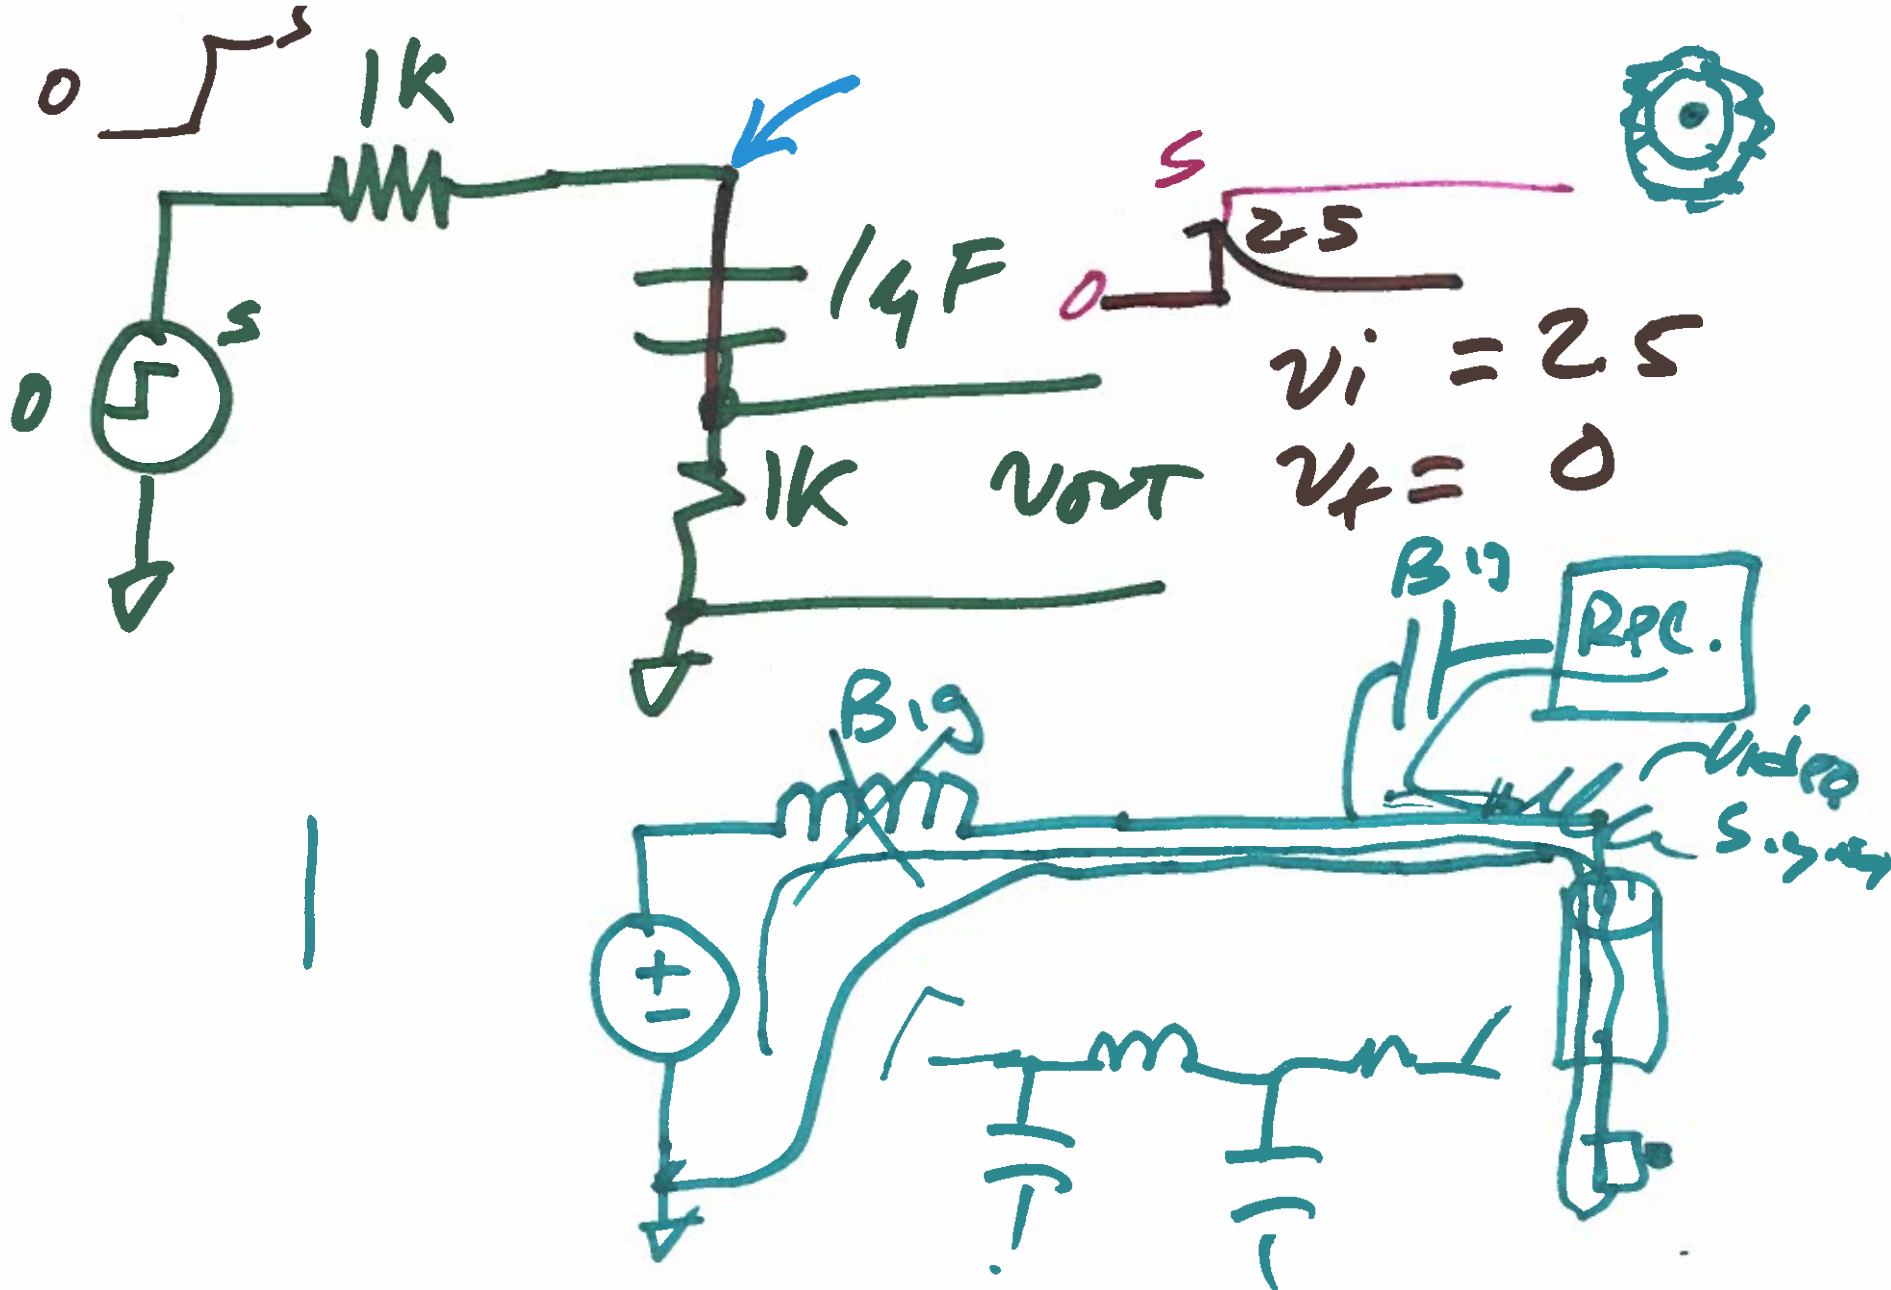 0 5
1K
5
0
1µF
1K
VOUT
5
2.5
0
Vi = 2.5
Vf = 0
Big
REC.
Big
Video
+
−